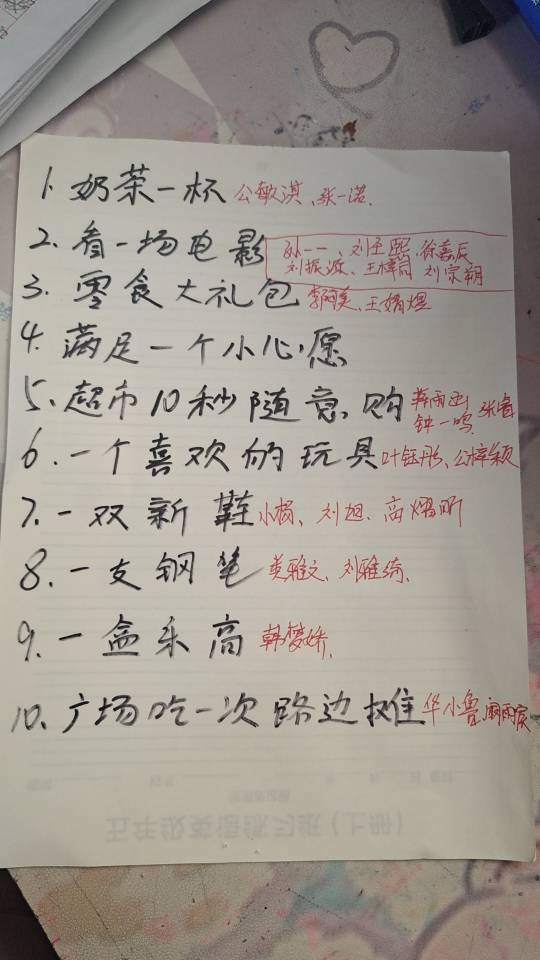 1. 奶茶一杯 公敏淇、张一诺.
2. 看一场电影 孙一一、刘子熙、徐嘉辰
刘振源、王梓茼 刘宗朔
3. 零食大礼包 王婧煜
4. 满足一个小心愿
5. 超市10秒随意购 韩雨函
钟一鸣、张睿
6. 一个喜欢的玩具 叶钰彤、公梓颖
7. 一双新鞋 小杨、刘旭、高熠昕
8. 一支钢笔 英雅文、刘雅绮、
9. 一盒乐高 韩梦娇、
10. 广场吃一次路边摊 华小鲁
五年级英语练习班(上册)